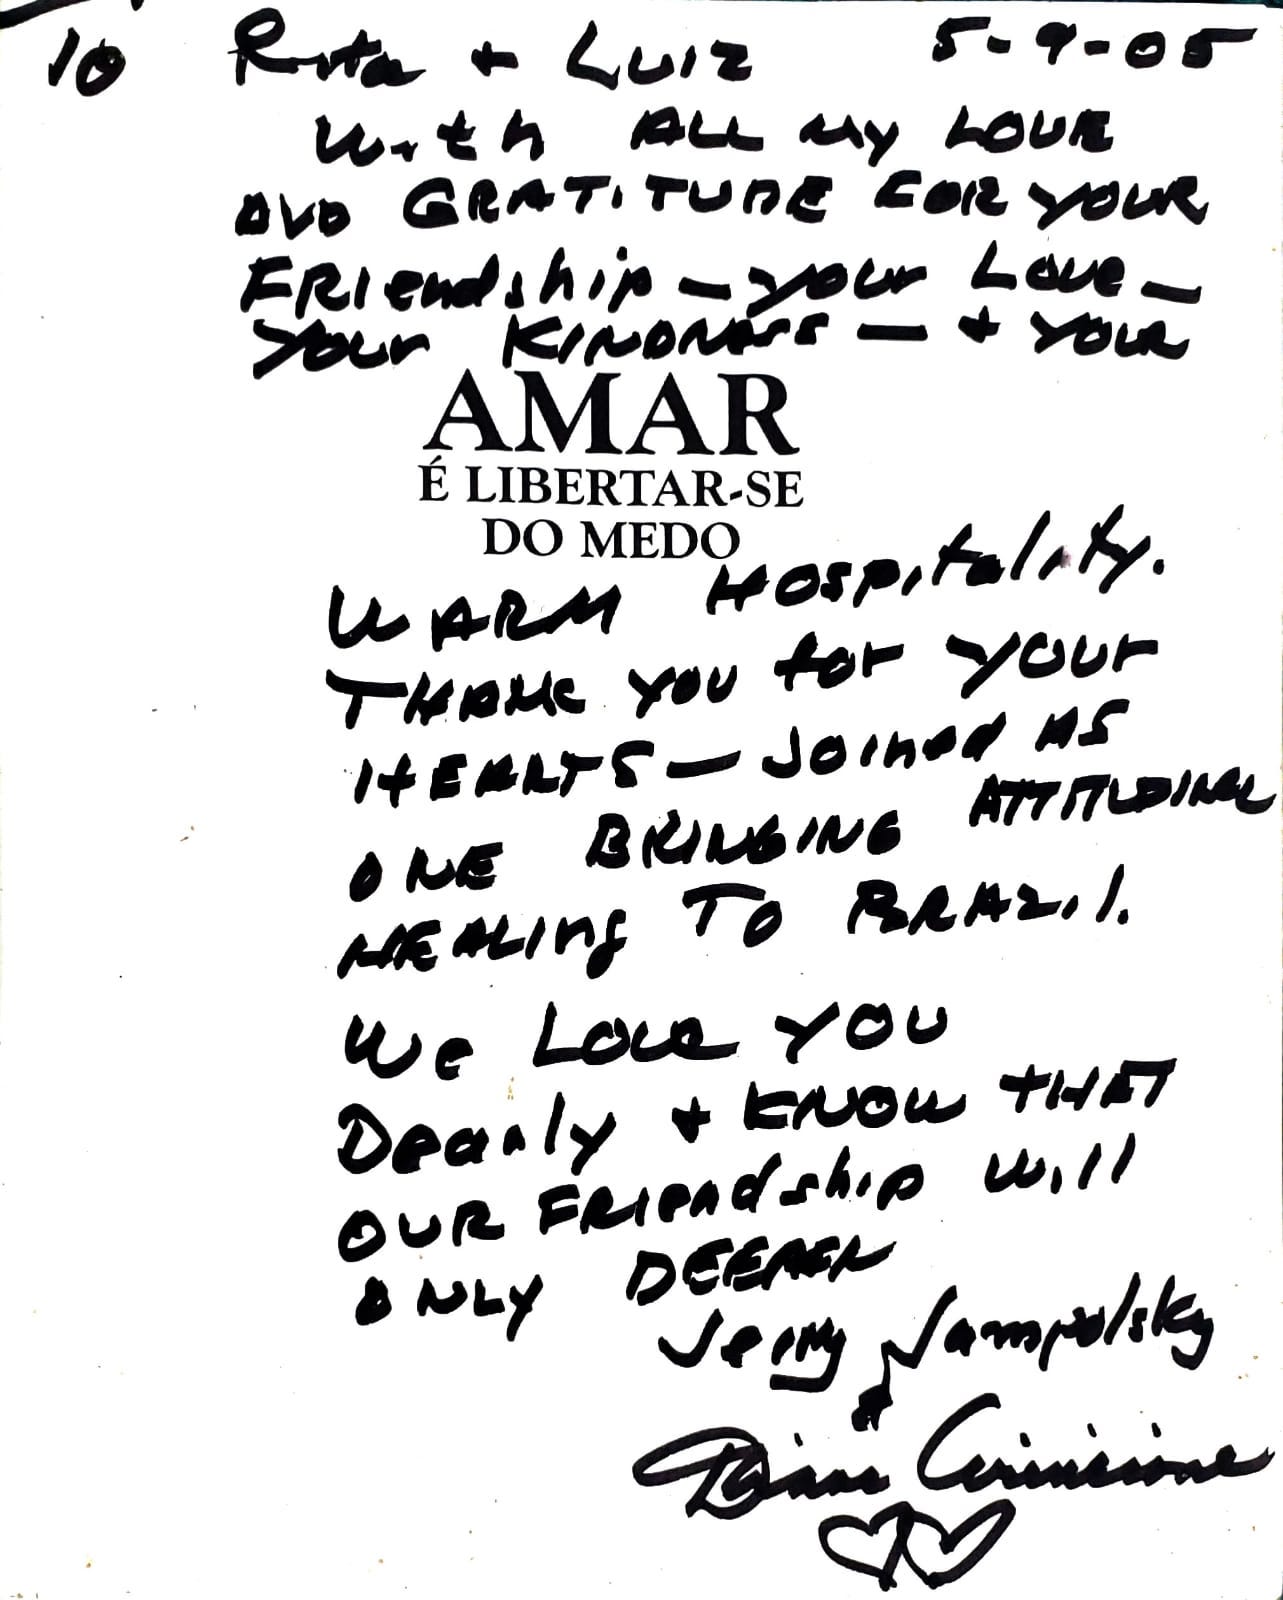 To Rita + Luiz 5-9-05
With ALL my LOVE
AND GRATITUDE FOR YOUR
FRIendship — your Love —
your KINDNess — + YOUR
AMAR
É LIBERTAR-SE
DO MEDO
WARM Hospitality.
THANK YOU for YOUR
HEARTS — Joined AS
ONE BRINGING ATTITUDINAL
HEALing TO BRAZil.
We Love YOU
Dearly + KNOW THAT
OUR FRIendship will
ONLY DEEPEN
Jerry Jampolsky
+
Diane Cirincione